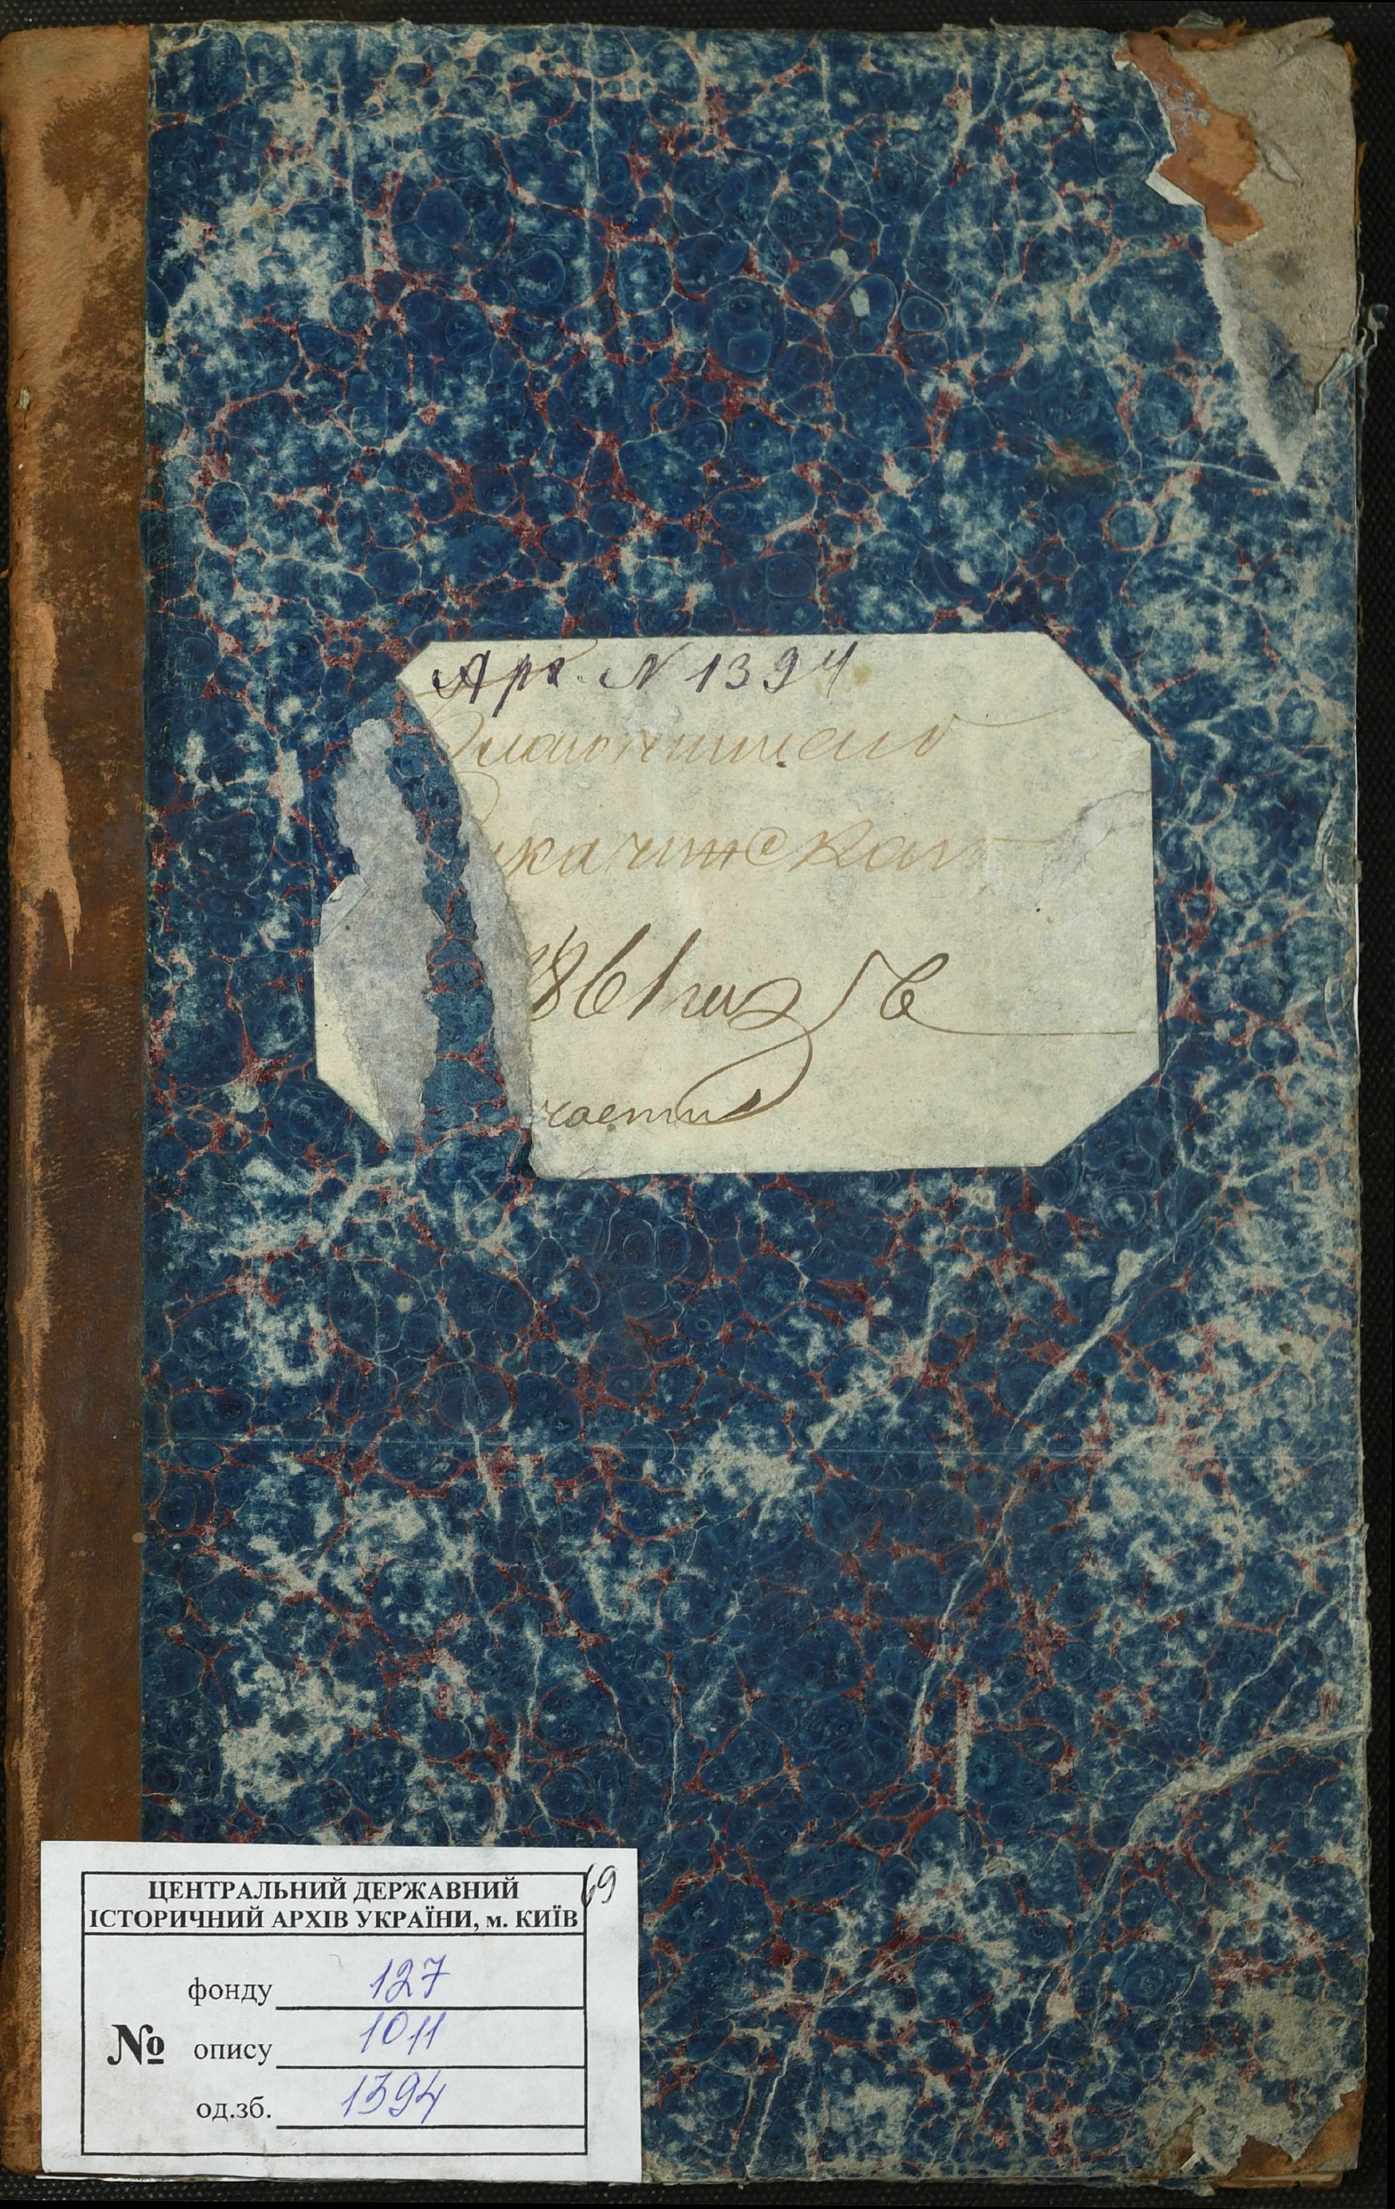 Арх. N 1394
1861 года
части
69
ЦЕНТРАЛЬНИЙ ДЕРЖАВНИЙ
ІСТОРИЧНИЙ АРХІВ УКРАЇНИ, м. КИЇВ
фонду 127
№ опису 1011
од.зб. 1394